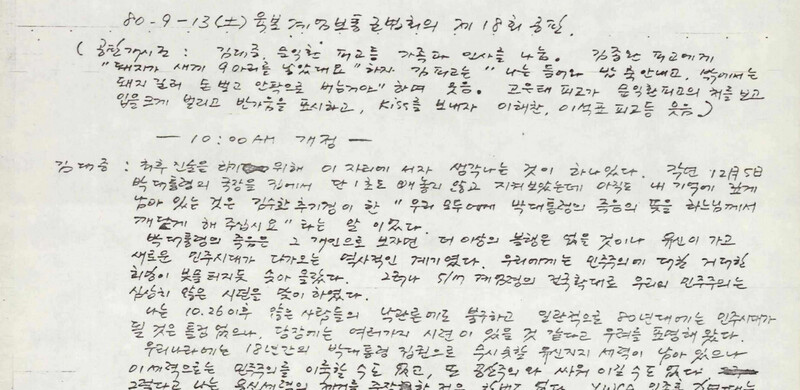 80-9-13(土) 육본 계엄보통군법회의 제18회 공판.
(공판개시전 : 김대중, 문익환 피고등 가족과 인사를 나눔. 김종완 피고에게
"돼지가 새끼 9마리를 낳았대요" 하자 김 피고는 " 나는 들어와 밥 축안내고, 밖에서는
돼지 길러 돈 벌고 안팎으로 버는거야" 하며 웃음. 고은태 피고가 문익환피고의 처를 보고
입을크게 벌리고 반가움을 표시하고, Kiss를 보내자 이해찬, 이석표 피고등 웃음.)
— 10:00 AM 개정 —
김대중 : 최후 진술은 하기 위해 이 자리에 서자 생각나는 것이 하나있다. 작년 12月5日
박대통령의 국장을 집에서 단 1초도 빼놓지 않고 지켜보았는데 아직도 내 기억에 깊게
남아 있는 것은 김수환추기경이 한 "우리 모두에게 박대통령의 죽음의 뜻을 하느님께서
깨닫게 해 주십시요" 라는 말 이었다.
박대통령의 죽음은 그 개인으로 보자면 더 이상의 불행은 없을 것이나 유신이 가고
새로운 민주시대가 다가오는 역사적인 계기였다. 우리에게는 민주주의에 대한 거대한
희망이 봇물터지듯 솟아 올랐다. 그러나 5/17 계엄령의 전국확대로 우리의 민주주의는
심상치 않은 시련을 맞이 하였다.
나는 10.26이후 많은 사람들의 낙관론에도 불구하고 일관적으로 80년대에는 민주시대가
될 것은 틀림 없으나, 당장에는 여러가지 시련이 있을 것 같다고 우려를 표명해 왔다.
우리나라에는 18년간의 박대통령 집권으로 수시로할 유신지지 세력이 남아 있으나
이 세력으로는 민주주의를 이룩할 수도 없고, 또 공산주의와 싸워 이길 수도 없다.
그렇다고 나는 유신세력의 을 주장한 적은 한번도 없다. YWCA